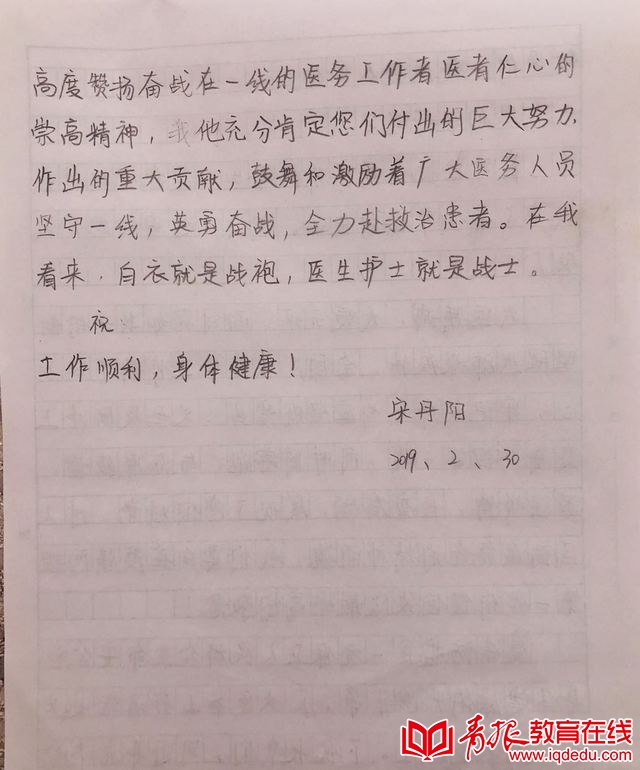 高度赞扬奋战在一线的医务工作者医者仁心的
崇高精神，我他充分肯定您们付出的巨大努力，
作出的重大贡献，鼓舞和激励着广大医务人员
坚守一线，英勇奋战，全力赴救治患者。在我
看来，白衣就是战袍，医生护士就是战士。
祝
工作顺利，身体健康！
宋丹阳
2019、2、30
青报教育在线
www.iqdedu.com